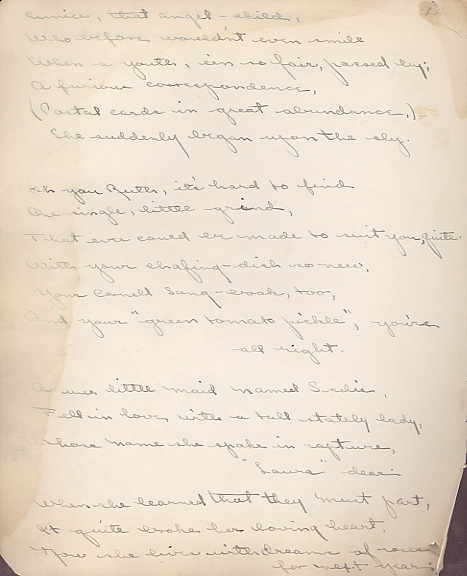 Eunice, that angel-child,
Who before wouldn't even smile
When a youth, e'en so fair, passed by;
A furious correspondence,
(Postal cards in great abundance.)
She suddenly began upon the sly.
Ah you Ruth, it's hard to find
One single, little grind,
That ever could be made to suit you, quite.
With your chafing-dish so new,
Your Cornell Song-book, too,
And your "green tomato pickle", you're
all right.
A wee little maid named Sadie,
Fell in love with a tall stately lady,
Whose name she spake in rapture,
"Laura" dear.
When she learned that they must part,
It quite broke her loving heart.
Now she lives with dreams of
for next year.